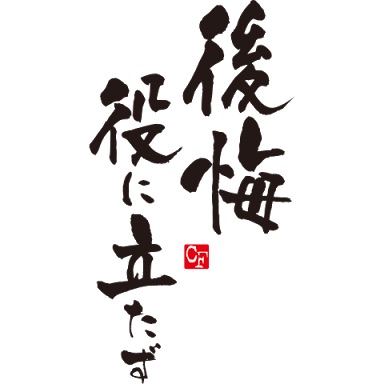 後悔
役に立たず
CF